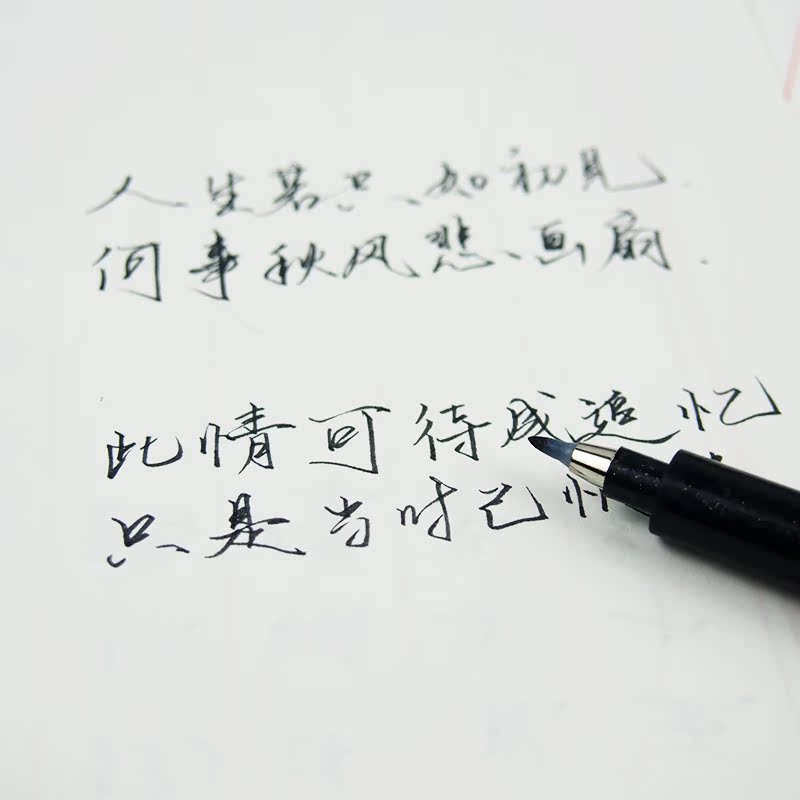 人生若只如初见
何事秋风悲画扇.
此情可待成追忆
只是当时已